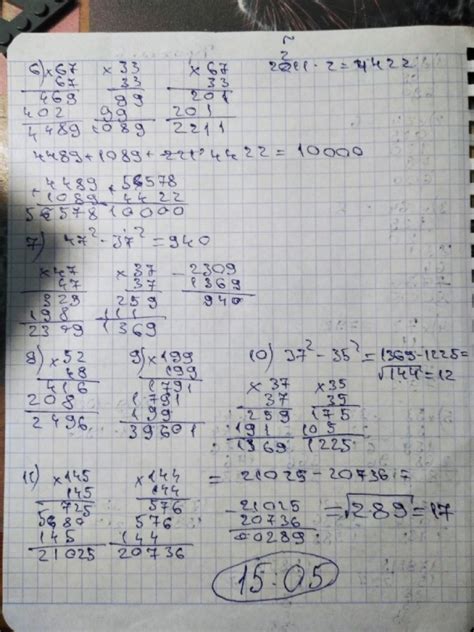 6) ×67 ×33 ×67 2211·2=4422
67 33 33
469 99 201
402 99 201
4489 1089 2211
4489+1089+ 4422=10000
4489 5578
1089 4422
5578 10000
7) 47²-37²=940
×47 ×37 -2309
47 37 1369
329 259 940
198 111
2309 1369
8) ×52 9) ×199 10) 37²-35²=1369-1225=
48 199 √144=12
416 1791 ×37 ×35
208 1791 37 35
2496 199 259 175
39601 191 105
1369 1225
11) ×145 ×144 = 21025-20736
145 144
725 576 -21025 =√289=17
580 576 20736
145 144 00289
21025 20736
15.05